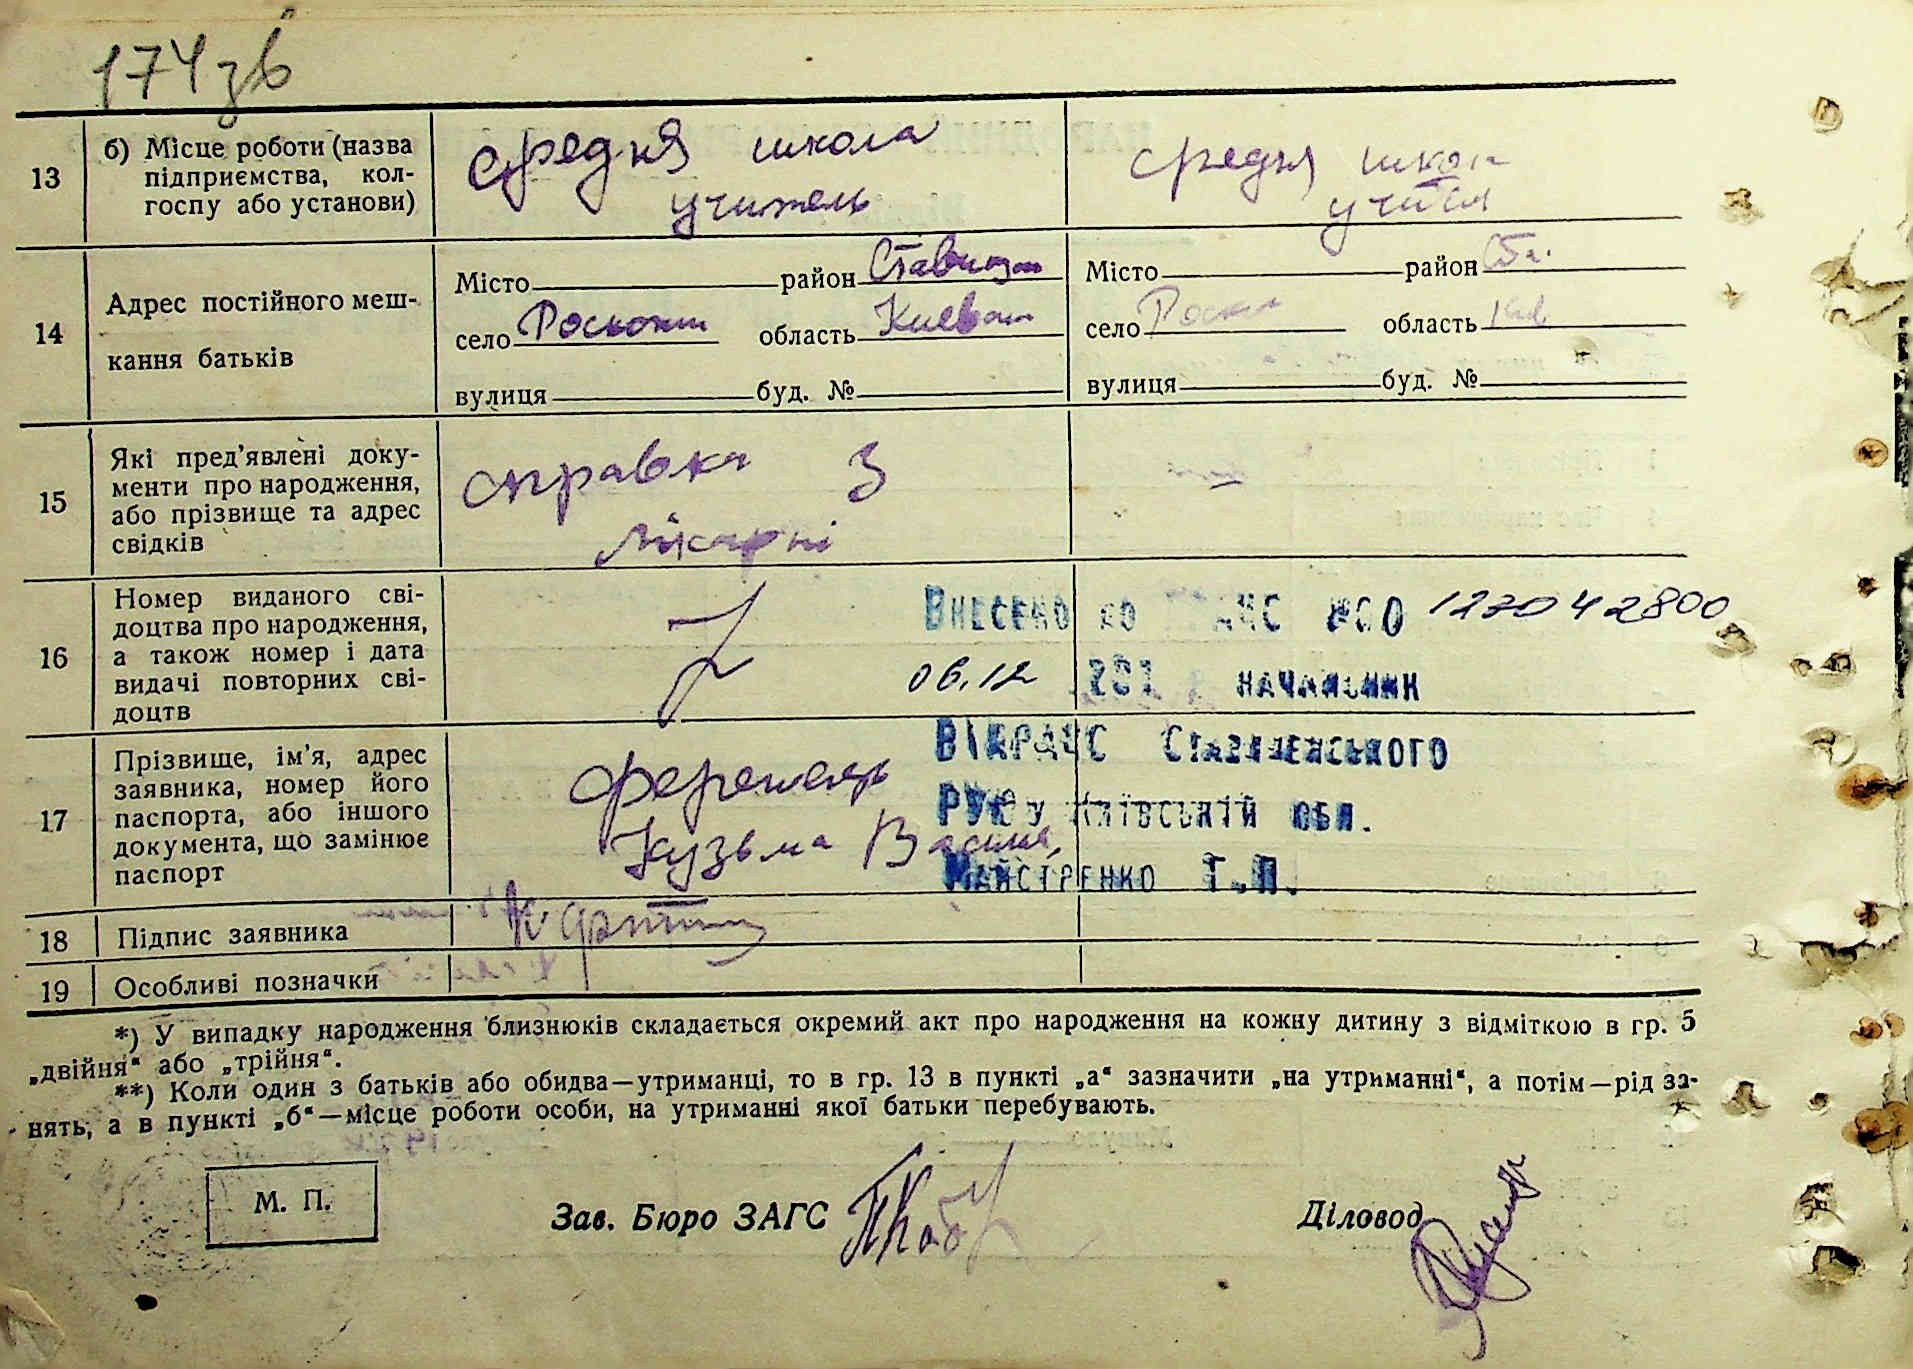 174 зв
13 б) Місце роботи (назва підприємства, колгоспу або установи)
средня школа
учитель
средня
14 Адрес постійного меш-
кання батьків
Місто район
село область Киев
вулиця буд. №
Місто район Ста.
село область
вулиця буд. №
15 Які пред'явлені доку-
менти про народження,
або прізвище та адрес
свідків
справка з
лікарні
16 Номер виданого сві-
доцтва про народження,
а також номер і дата
видачі повторних сві-
доцтв
Внесено до 123042800
06.12 201 начальник
17 Прізвище, ім'я, адрес
заявника, номер його
паспорта, або іншого
документа, що замінює
паспорт
Кузьма
ВІДРАЦС Ставищенського
РУЮ у Київській обл.
Майстренко Т.П.
18 Підпис заявника
19 Особливі позначки
*) У випадку народження близнюків складається окремий акт про народження на кожну дитину з відміткою в гр. 5
„двійня“ або „трійня“.
**) Коли один з батьків або обидва—утриманці, то в гр. 13 в пункті „а“ зазначити „на утриманні“, а потім—рід за-
нять, а в пункті „б“—місце роботи особи, на утриманні якої батьки перебувають.
М. П.
Зав. Бюро ЗАГС
Діловод